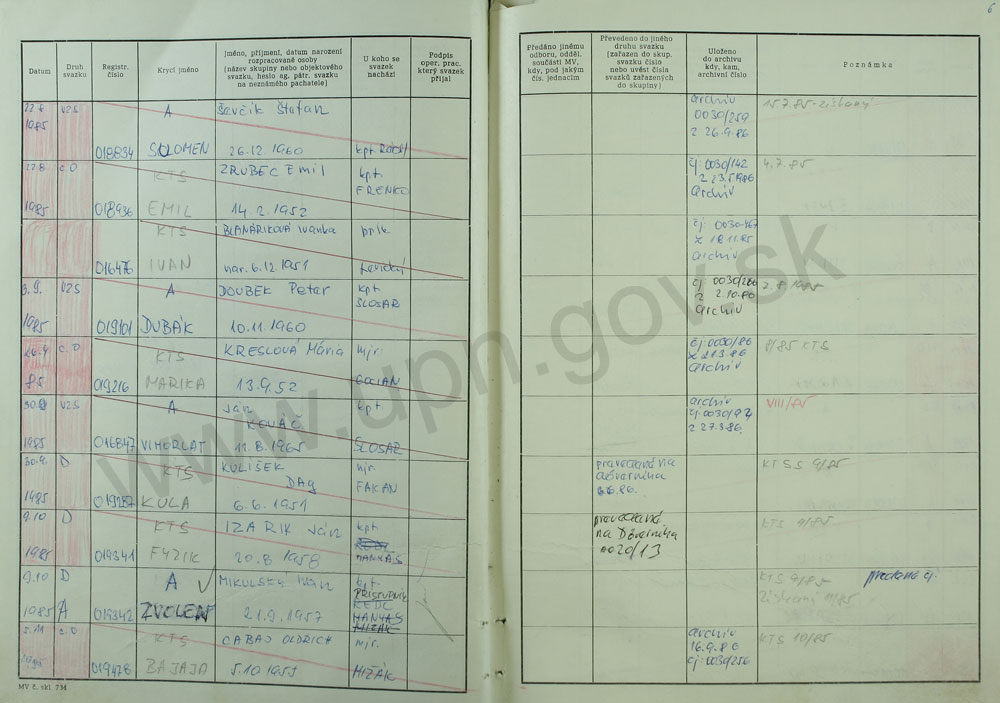 6
Datum
Druh svazku
Registr. číslo
Krycí jméno
Jméno, příjmení, datum narození rozpracované osoby (název skupiny nebo objektového svazku, heslo ag. pátr. svazku na neznámého pachatele)
U koho se svazek nachází
Podpis oper. prac. který svazek přijal
Předáno jinému odboru, odděl. součásti MV, kdy, pod jakým čís. jednacím
Převedeno do jiného druhu svazku (zařazen do skup. svazku číslo nebo uvést čísla svazků zařazených do skupiny)
Uloženo do archivu kdy, kam, archivní číslo
Poznámka
22.8. VZS A Ševčík Štefan archiv 15.7.85-získaný
1985 0030/259
018834 SOLOMEN 26.12.1960 kpt. z 26.9.86
22.8 KTS ZRUBEC Emil kpt. čj. 0030/142 4.7.85
FRENKO z 23.5.1986
1985 018936 EMIL 14.2.1952 archiv
KTS BLANÁRIKOVÁ Ivanka čj. 0030-
z 18.11.85
016476 IVAN nar. 6.12.1951 archiv
3.9. VZS A DOUBEK Peter kpt čj 0030/ 2.8.1985
SLOSAR z 2.10.86
1985 019101 DUBÁK 10.11.1960 archiv
KTS KRESLOVÁ Mária mjr. čj. 0030/86 8/85 KTS
z 21.3.86
85 019216 MARIKA 13.9.52 GOCIAN archiv
VZS A Ján kpt archiv VIII/85
KOVÁČ čj. 0030/
1985 016847 VIHORLAT 11.8.1965 SLOSAR z 27.3.86.
30.9. D KTS KULIŠEK mjr. KTS S 9/85
Dag FAKAN
1985 019287 KULA 6.6.1951
9.10 D KTS IZARIK Ján kpt KTS 9/85
na Dôverníka
1985 019341 FYZIK 20.8 1958 MANKAS 0020/13
9.10 D A MIKULSKÝ Ivan kpt. KTS 9/85 predané čj.
PRISTUPNIK Získaný 11/85
1985 A 019342 ZVOLEN 21.9.1957
KTS CABAJ OLDRICH mjr. archiv KTS 10/85
16.9.86
019478 BAJAJA 5.10 1957 MIŽÁK čj: 0030/256
MV č. skl. 734
www.upn.gov.sk